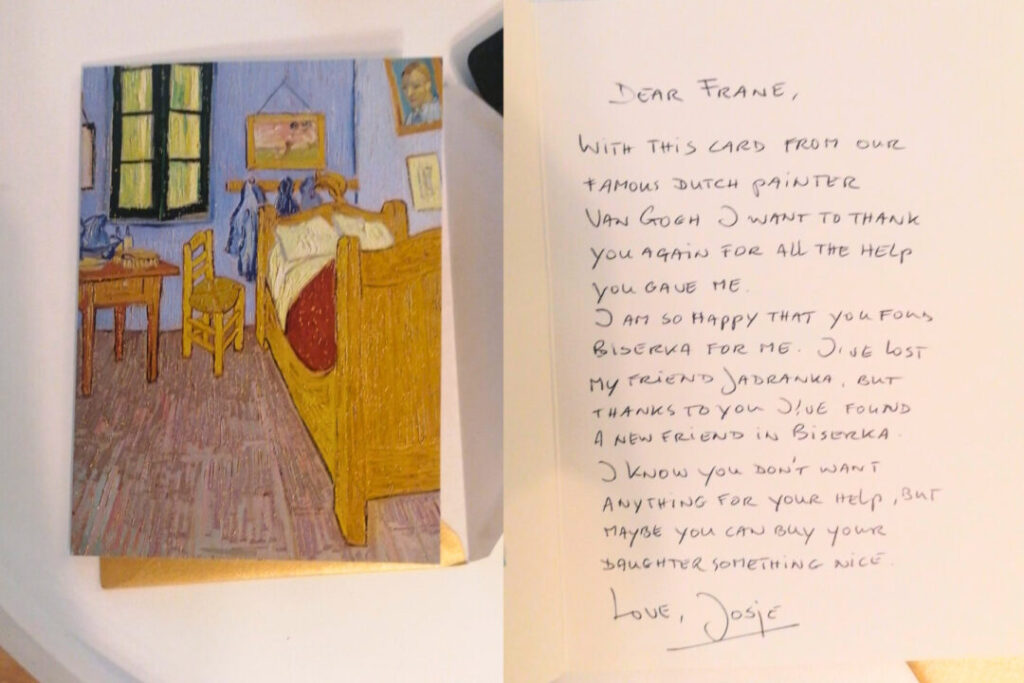 DEAR FRANE,
WITH THIS CARD FROM OUR
FAMOUS DUTCH PAINTER
VAN GOGH I WANT TO THANK
YOU AGAIN FOR ALL THE HELP
YOU GAVE ME.
I AM SO HAPPY THAT YOU FOUND
BISERKA FOR ME. I'VE LOST
MY FRIEND JADRANKA, BUT
THANKS TO YOU I'VE FOUND
A NEW FRIEND IN BISERKA.
I KNOW YOU DON'T WANT
ANYTHING FOR YOUR HELP, BUT
MAYBE YOU CAN BUY YOUR
DAUGHTER SOMETHING NICE.
LOVE, JOSJE